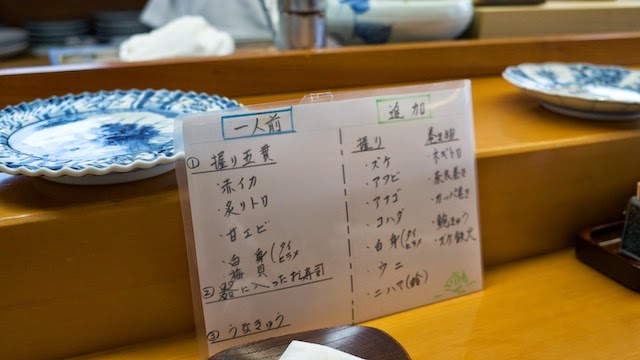 一人前
① 握り五貫
・赤イカ
・炙りトロ
・甘エビ
・白身(タイ
ヒラメ
・梅貝
② 器に入ったちれ寿司
③ うなきゅう
追加
握り
・ズケ
・アワビ
・アナゴ
・コハダ
・白身(タイ
ヒラメ
・ウニ
・ニハマ(蛤)
巻き物
・ネギトロ
・奈良巻き
・カッパ巻き
・鰻きゅう
・ズケ鉄火